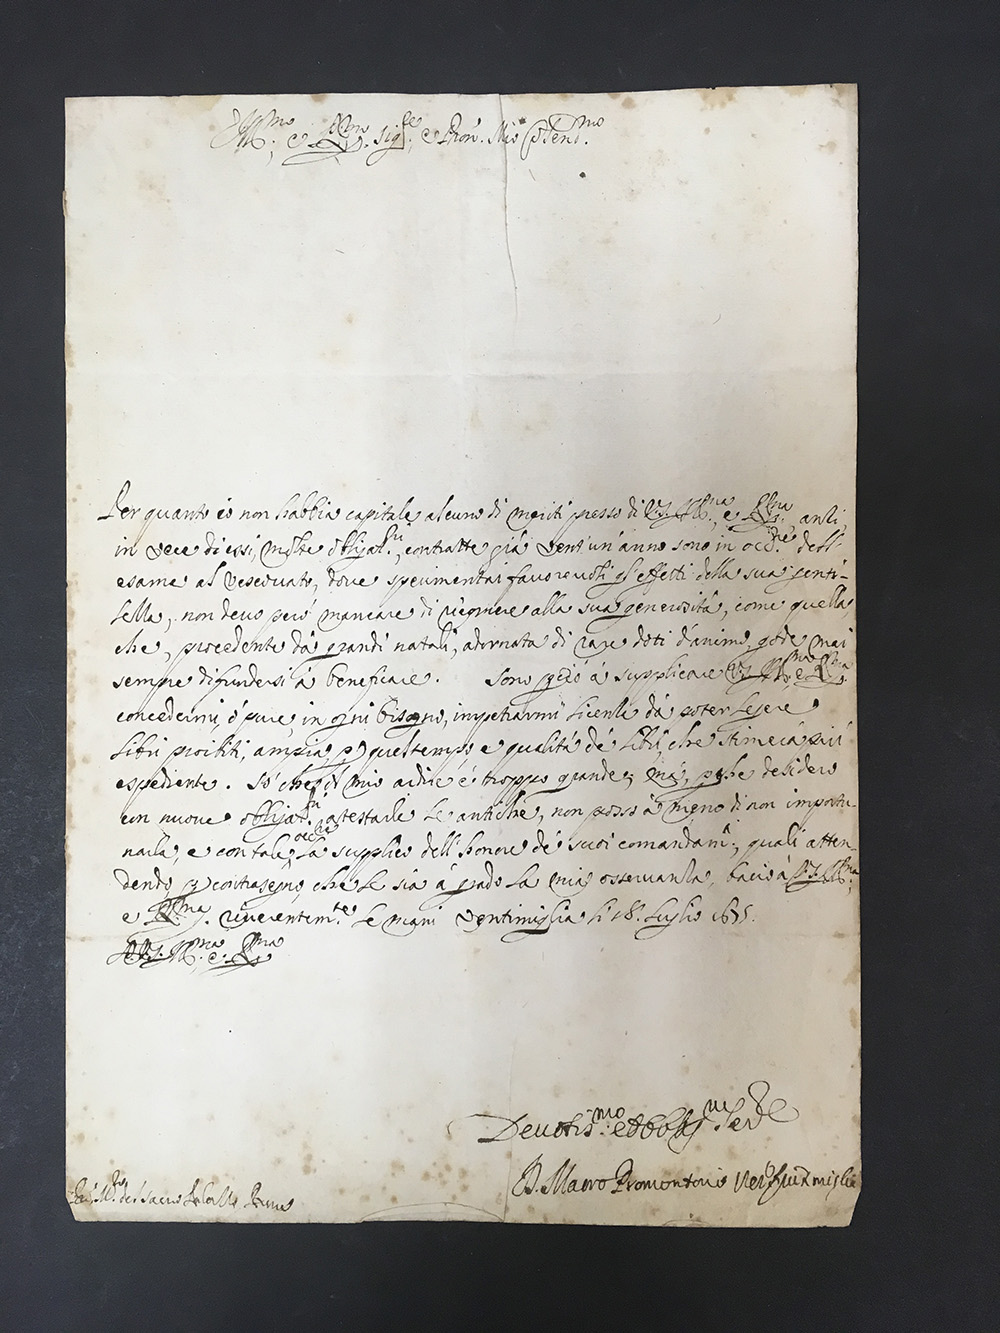 Ill.mo e R.mo Sig.re e Pron. Mio Col.mo
Per quanto io non habbia capitale alcuno di meriti presso di V.S. Ill.ma e R.ma, anzi,
in vece di essi, molte obligat.ni, contratte già vent'un'anno sono in occ.ne dell'-
esame al Vescovato, dove sperimentai favorevoli gl'effetti della sua genti-
lezza, non devo però mancare di ricorrere alla sua generosità, come quella
che, procedente da grandi natali, adornata di rare doti d'animo, gode mai
sempre difundersi à beneficare. Sono perciò à supplicare V.S. Ill.ma e R.ma
concedermi, ó pure, in ogni bisogno, impetrarmi licenza dà poter legere
libri proibiti, ampia p quel tempo e qualità de libri, che stimerà più
espediente. Sò che il mio ardire è troppo grande; mà, pche desidero
con nuove obligat.ni attestarle le antiche, non posso à meno di non importu-
narla, e con tale occ.ne la supplico dell'honore de suoi comandam.i, quali atten-
dendo p contrasegno, che le sia à grado la mia osservanza, bacio à V.S. Ill.ma
e R.ma riverentem.te le mani Ventimiglia li 18. Luglio 1675.
Di V.S. Ill.ma e R.ma
Devotis.mo ed obblig.mo Ser.re
D. Mauro Promontorio Ves.o di Vintimiglia
P.re M.ro del Sacro Palazzo Roma